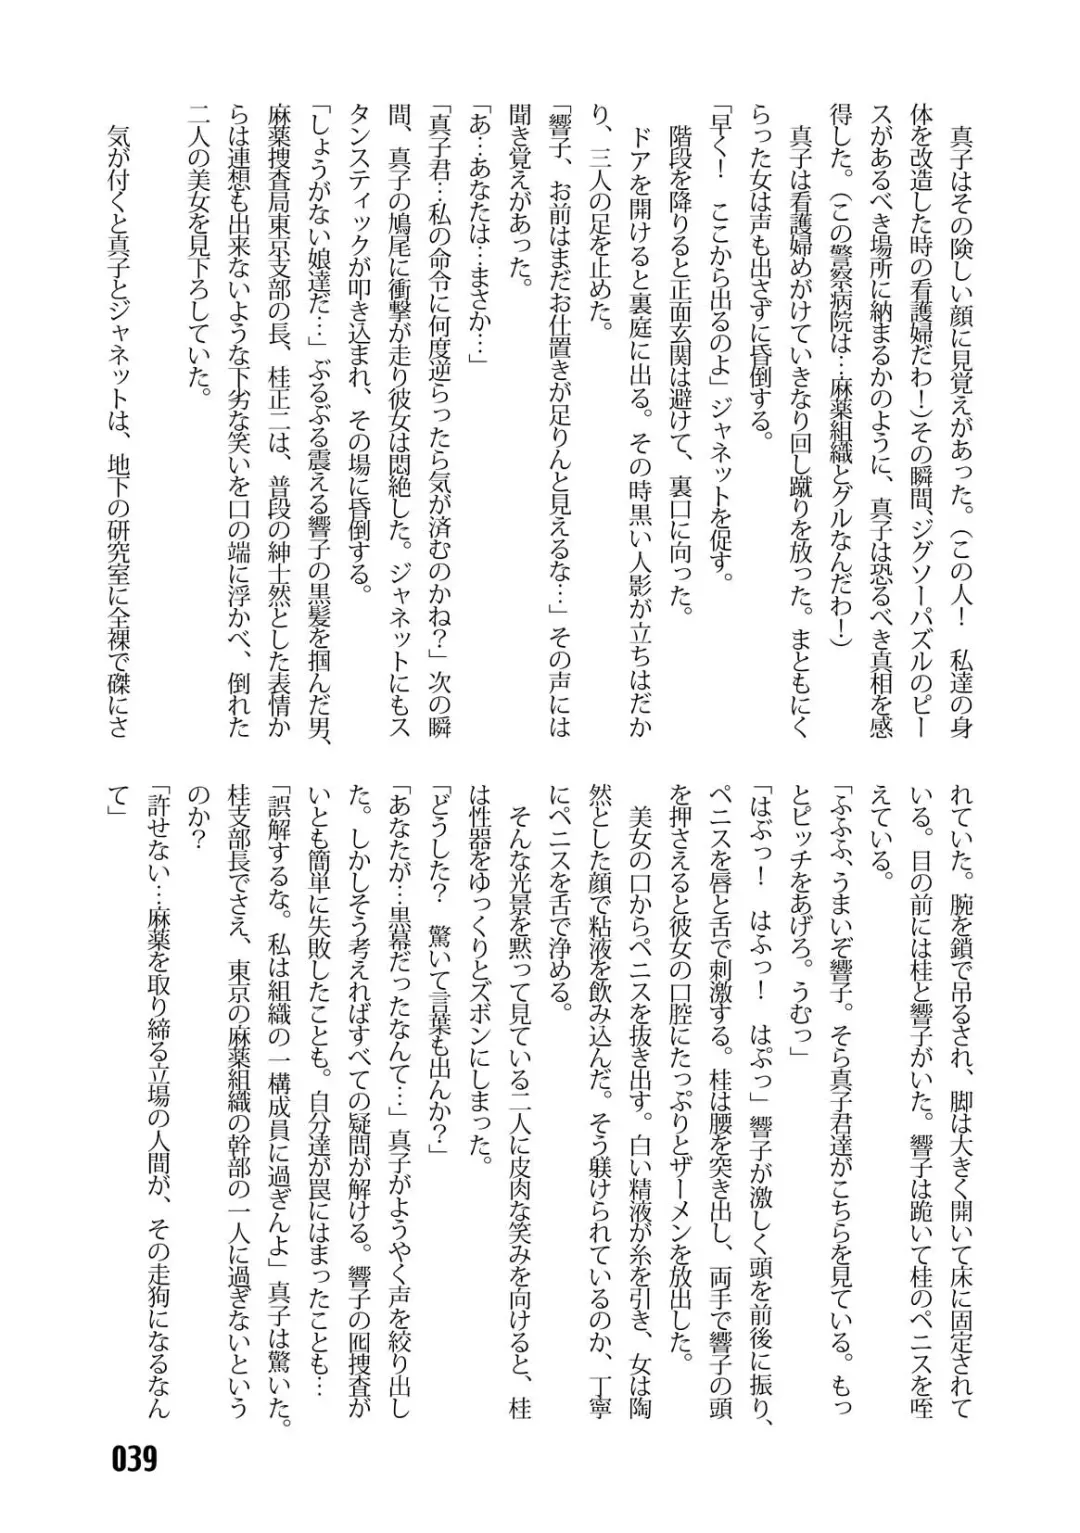 真子はその険しい顔に見覚えがあった。（この人！　私達の身
体を改造した時の看護婦だわ！）その瞬間、ジグソーパズルのピー
スがあるべき場所に納まるかのように、真子は恐るべき真相を感
得した。（この警察病院は…麻薬組織とグルなんだわ！）
真子は看護婦めがけていきなり回し蹴りを放った。まともにく
らった女は声も出さずに昏倒する。
「早く！　ここから出るのよ」ジャネットを促す。
階段を降りると正面玄関は避けて、裏口に向った。
ドアを開けると裏庭に出る。その時黒い人影が立ちはだか
り、三人の足を止めた。
「響子、お前はまだお仕置きが足りんと見えるな…」その声には
聞き覚えがあった。
「あ…あなたは…まさか…」
「真子君…私の命令に何度逆らったら気が済むのかね？」次の瞬
間、真子の鳩尾に衝撃が走り彼女は悶絶した。ジャネットにもス
タンスティックが叩き込まれ、その場に昏倒する。
「しょうがない娘達だ…」ぶるぶる震える響子の黒髪を掴んだ男、
麻薬捜査局東京支部の長、桂正二は、普段の紳士然とした表情か
らは連想も出来ないような下劣な笑いを口の端に浮かべ、倒れた
二人の美女を見下ろしていた。
気が付くと真子とジャネットは、地下の研究室に全裸で磔にさ
れていた。腕を鎖で吊るされ、脚は大きく開いて床に固定されて
いる。目の前には桂と響子がいた。響子は跪いて桂のペニスを咥
えている。
「ふふふ、うまいぞ響子。そら真子君達がこちらを見ている。もっ
とピッチをあげろ。うむっ」
「はぶっ！　はふっ！　はぷっ」響子が激しく頭を前後に振り、
ペニスを唇と舌で刺激する。桂は腰を突き出し、両手で響子の頭
を押さえると彼女の口腔にたっぷりとザーメンを放出した。
美女の口からペニスを抜き出す。白い精液が糸を引き、女は陶
然とした顔で粘液を飲み込んだ。そう躾けられているのか、丁寧
にペニスを舌で浄める。
そんな光景を黙って見ている二人に皮肉な笑みを向けると、桂
は性器をゆっくりとズボンにしまった。
「どうした？　驚いて言葉も出んか？」
「あなたが…黒幕だったなんて…」真子がようやく声を絞り出し
た。しかしそう考えればすべての疑問が解ける。響子の囮捜査が
いとも簡単に失敗したことも。自分達が罠にはまったことも…
「誤解するな。私は組織の一構成員に過ぎんよ」真子は驚いた。
桂支部長でさえ、東京の麻薬組織の幹部の一人に過ぎないという
のか？
「許せない…麻薬を取り締る立場の人間が、その走狗になるなん
て」
039